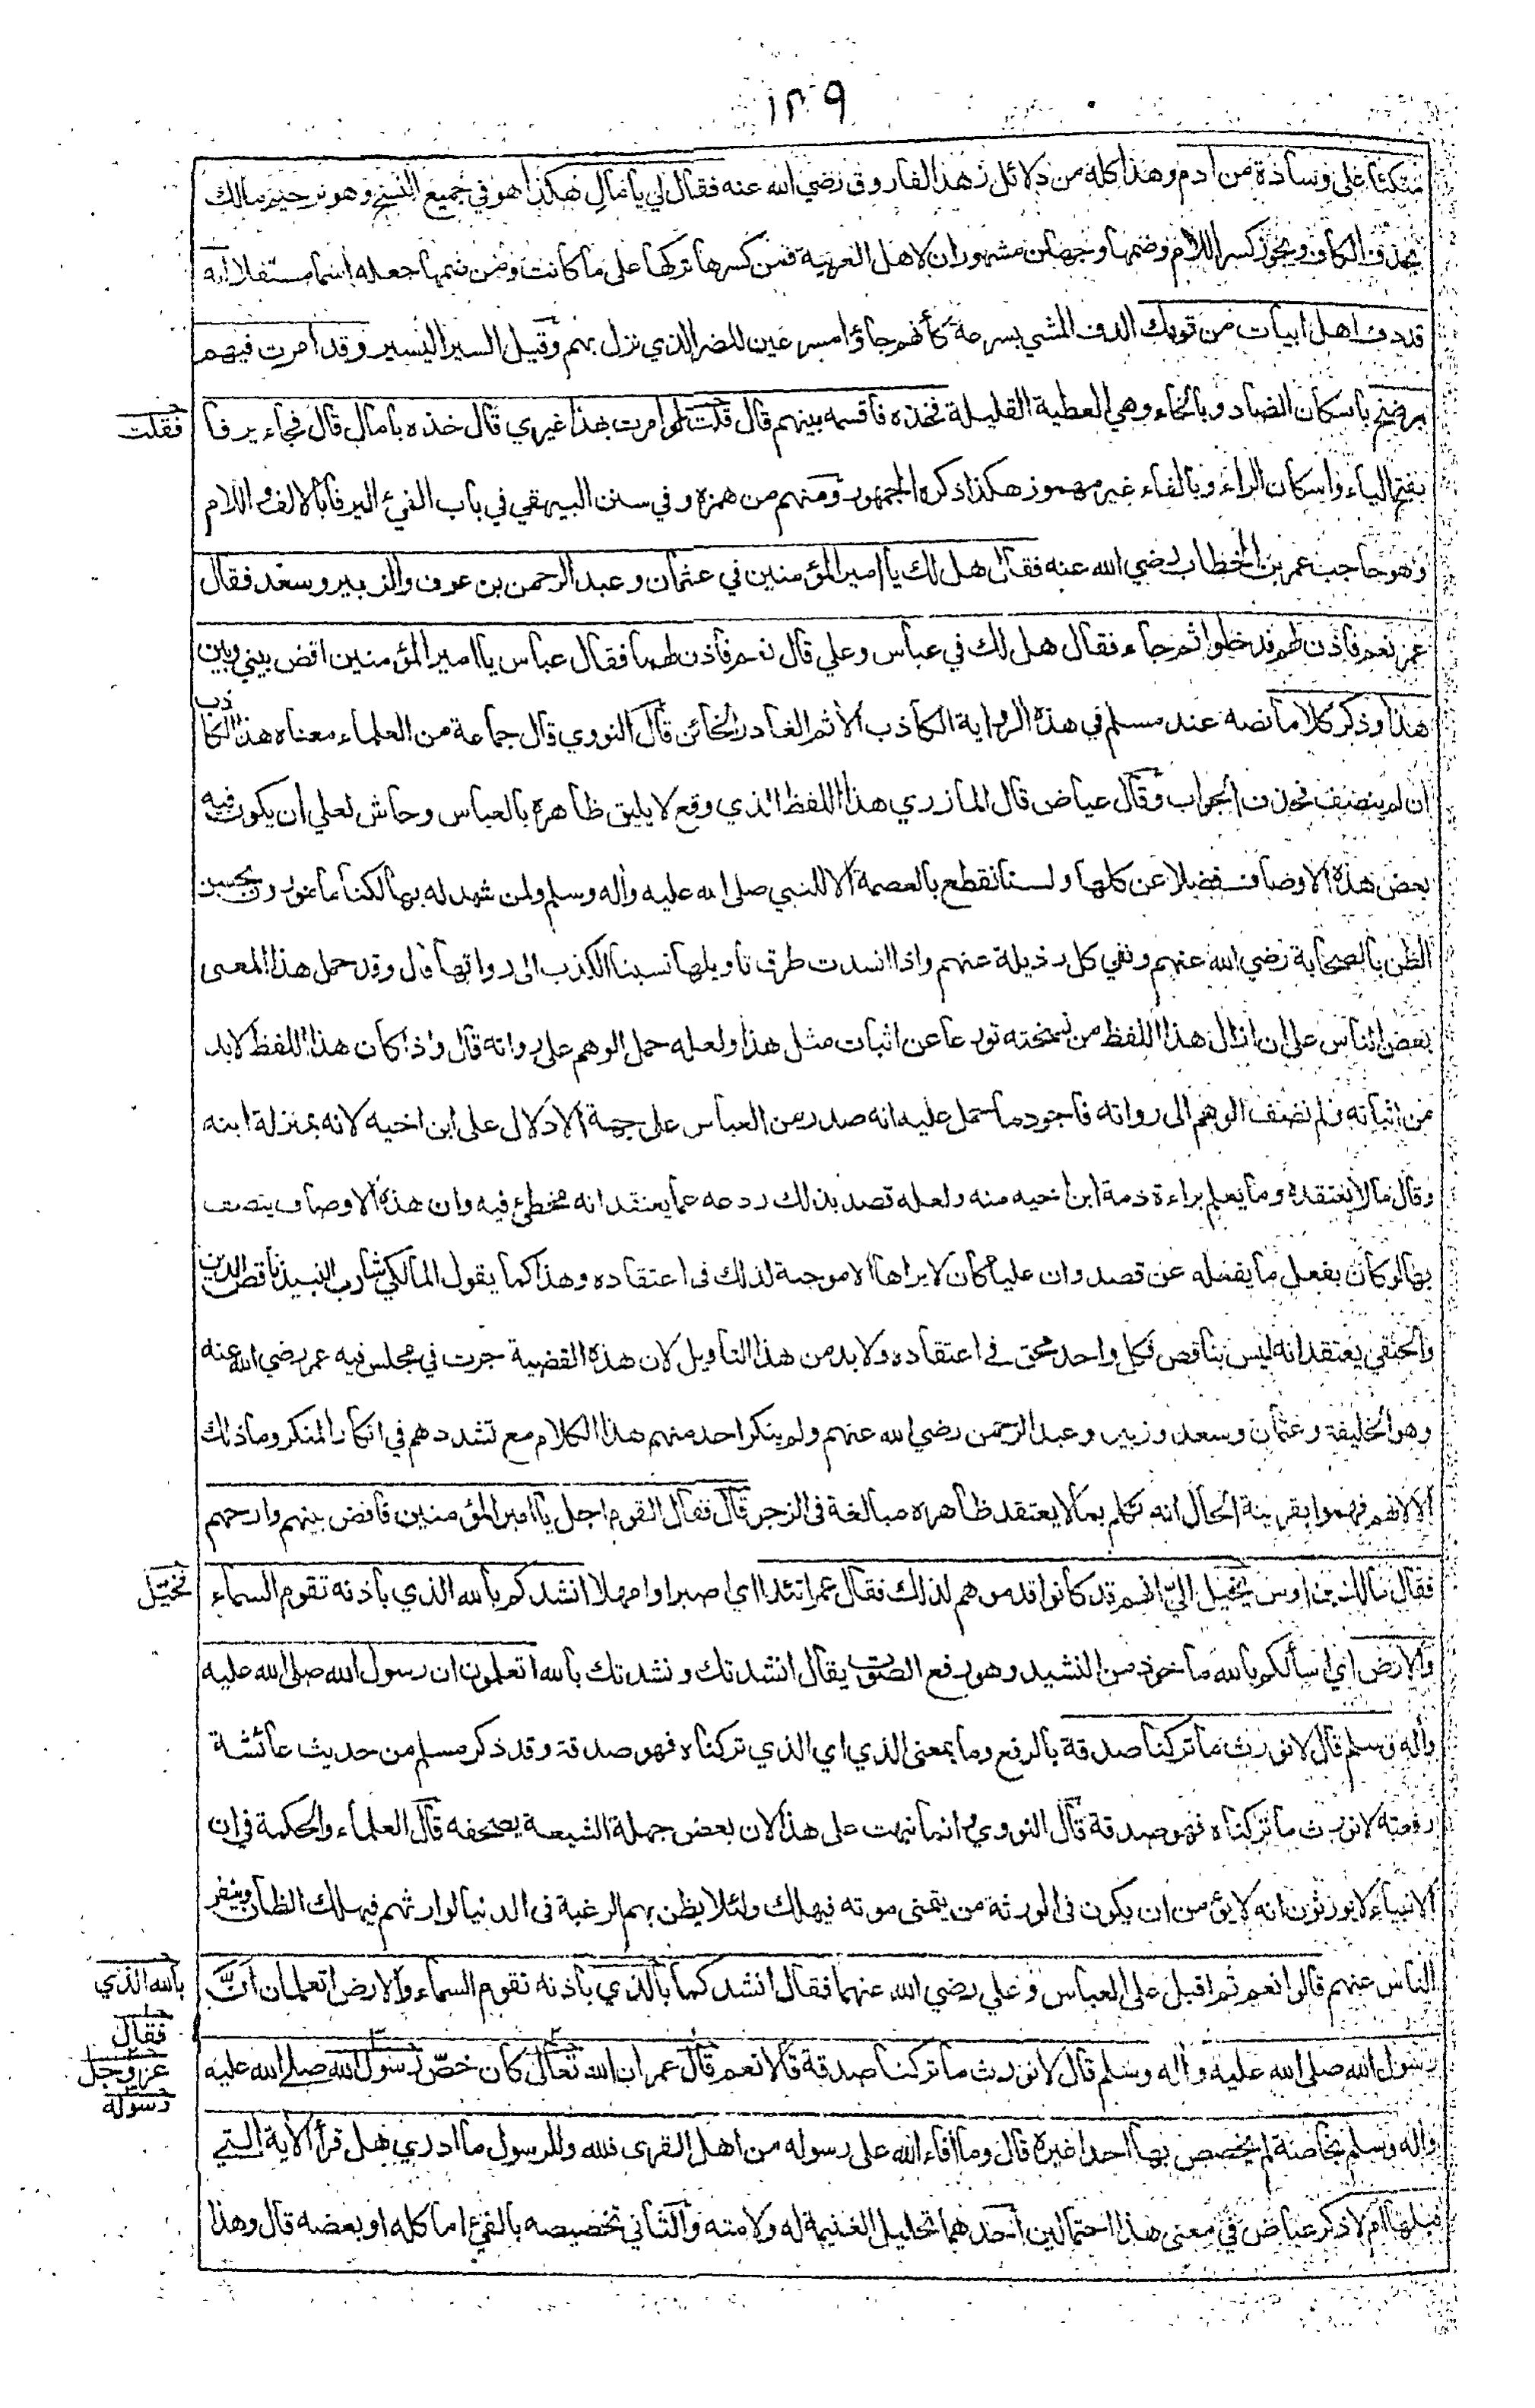 ١٣٩
متكئا على وسادة من ادم وهذا كله من دلائل زهد الفاروق رضي الله عنه فقال لي يا مال هكذا هو في جميع النسخ وهو ترخيم مالك
بحذف الكاف ويجوز كسر اللام وضمها وجهان مشهوران لاهل العربية فمن كسرها تركها على ما كانت ومن ضمها جعله اسما مستقلا انه
قد دف اهل ابيات من قومك الدف المشي بسرعة كأنهم جاؤا مسرعين للضر الذي نزل بهم وقيل السير اليسير وقد امرت فيهم
برضخ باسكان الضاد وبالخاء وهي العطية القليلة فخذه فاقسمه بينهم قال قلت لو امرت بهذا غيري قال خذه يا مال قال فجاء يرفا
فقلت
بفتح الياء واسكان الراء وبالفاء غير مهموز هكذا ذكره الجمهور ومنهم من همزه وفي سنن البيهقي في باب الفيء اليرفا بالالف واللام
وهو حاجب عمر بن الخطاب رضي الله عنه فقال هل لك يا امير المؤمنين في عثمان وعبد الرحمن بن عوف والزبير وسعد فقال
عمر نعم فاذن لهم فدخلوا ثم جاء فقال هل لك في عباس وعلي قال نعم فاذن لهما فقال عباس يا امير المؤمنين اقض بيني وبين
هذا وذكر كلاما نصه عند مسلم في هذه الرواية الكاذب الاثم الغادر الخائن قال النووي قال جماعة من العلماء معناه هذا الكاذب
ان لم ينصف فحذف الجواب وقال عياض قال المازري هذا اللفظ الذي وقع لا يليق ظاهره بالعباس وحاش لعلي ان يكون فيه
بعض هذه الاوصاف فضلا عن كلها ولسنا نقطع بالعصمة الا للنبي صلى الله عليه وأله وسلم ولمن شهد له بها لكنا مامورون بحسن
الظن بالصحابة رضي الله عنهم ونفي كل رذيلة عنهم واذا انسدت طرق تاويلها نسبنا الكذب الى رواتها قال وقد حمل هذا المعنى
بعض الناس على ان ازال هذا اللفظ من نسخته تورعا عن اثبات مثل هذا ولعله حمل الوهم على رواته قال واذا كان هذا اللفظ لابد
من اثباته ولم نضف الوهم الى رواته فاجود ما حمل عليه انه صدر من العباس على جهة الادلال على ابن اخيه لانه بمنزلة ابنه
وقال ما لا يعتقده وما يعلم براءة ذمة ابن اخيه منه ولعله قصد بذلك ردعه عما يعتقد انه مخطئ فيه وان هذه الاوصاف يتصف
بها لو كان يفعل ما يفعله عن قصد وان عليا كان لا يراها الا موجبة لذلك في اعتقاده وهذا كما يقول المالكي شارب النبيذ ناقص الدين
والحنفي يعتقد انه ليس بناقص فكل واحد محق في اعتقاده ولا بد من هذا التاويل لان هذه القضية جرت في مجلس فيه عمر رضي الله عنه
وهو الخليفة وعثمان وسعد وزبير وعبد الرحمن رضي الله عنهم ولم ينكر احد منهم هذا الكلام مع تشددهم في انكار المنكر وما ذلك
الا لانهم فهموا بقرينة الحال انه تكلم بما لا يعتقد ظاهره مبالغة في الزجر قال فقال القوم اجل يا امير المؤمنين فاقض بينهم وارحمهم
فقال مالك بن اوس يخيل الي انهم قد كانوا قدموهم لذلك فقال عمر اتئدا اي اصبرا وامهلا انشدكم بالله الذي باذنه تقوم السماء
تخيل
والارض اي اسألكم بالله ماخوذ من النشيد وهو رفع الصوت يقال انشدتك ونشدتك بالله اتعلمون ان رسول الله صلى الله عليه
وأله وسلم قال لا نورث ما تركنا صدقة بالرفع وما بمعنى الذي اي الذي تركناه فهو صدقة وقد ذكر مسلم من حديث عائشة
رفعته لا نورث ما تركناه فهو صدقة قال النووي وانما نبهت على هذا لان بعض جهلة الشيعة يصحفه قال العلماء والحكمة في ان
الانبياء لا يورثون انه لا يؤمن ان يكون في الورثة من يتمنى موته فيهلك ولئلا يظن بهم الرغبة في الدنيا لوارثهم فيهلك الظان وينفر
الناس عنهم قالوا نعم ثم اقبل على العباس وعلي رضي الله عنهما فقال انشدكما بالذي باذنه تقوم السماء والارض اتعلمان انّ
بالله الذي
رسول الله صلى الله عليه وأله وسلم قال لا نورث ما تركنا صدقة قالا نعم قال عمر ان الله تعالى كان خصّ رسول الله صلى الله عليه
فقال
عز وجل
رسوله
وأله وسلم بخاصة لم يخصص بها احدا غيره قال وما افاء الله على رسوله من اهل القرى فلله وللرسول ما ادري هل قرأ الآية التي
قبلها ام لا ذكر عياض في معنى هذا احتمالين احدهما تحليل الغنيمة له ولامته والثاني تخصيصه بالفيء اما كله او بعضه قال وهذا